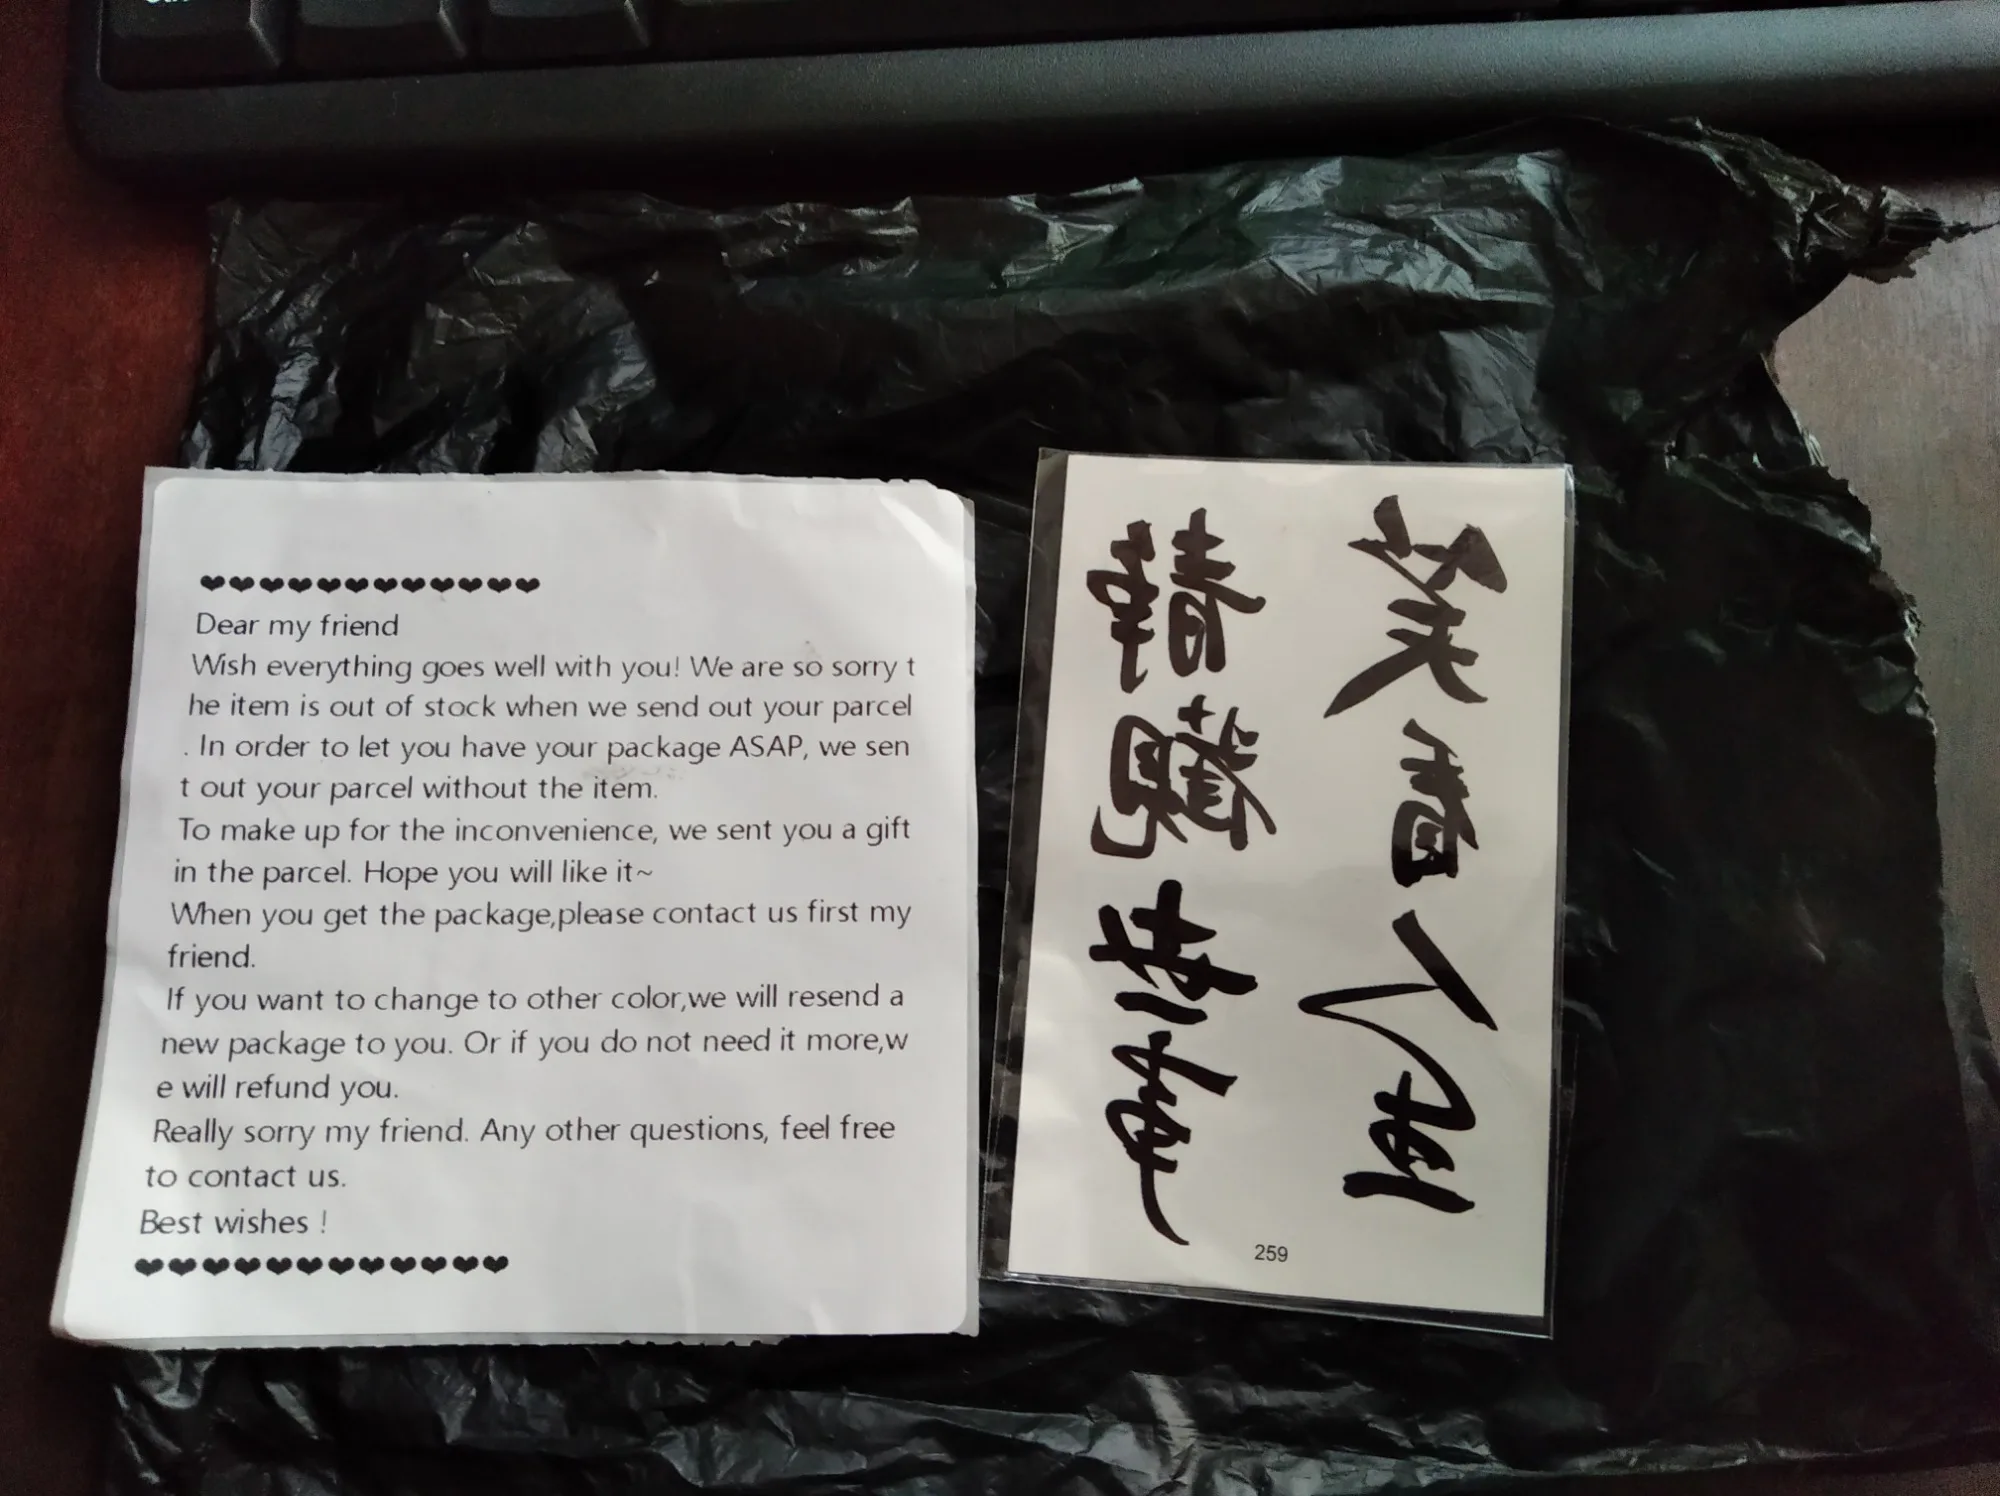 ❤❤❤❤❤❤❤❤❤❤❤❤
Dear my friend
Wish everything goes well with you! We are so sorry t
he item is out of stock when we send out your parcel
. In order to let you have your package ASAP, we sen
t out your parcel without the item.
To make up for the inconvenience, we sent you a gift
in the parcel. Hope you will like it~
When you get the package,please contact us first my
friend.
If you want to change to other color,we will resend a
new package to you. Or if you do not need it more,w
e will refund you.
Really sorry my friend. Any other questions, feel free
to contact us.
Best wishes !
❤❤❤❤❤❤❤❤❤❤❤❤
259